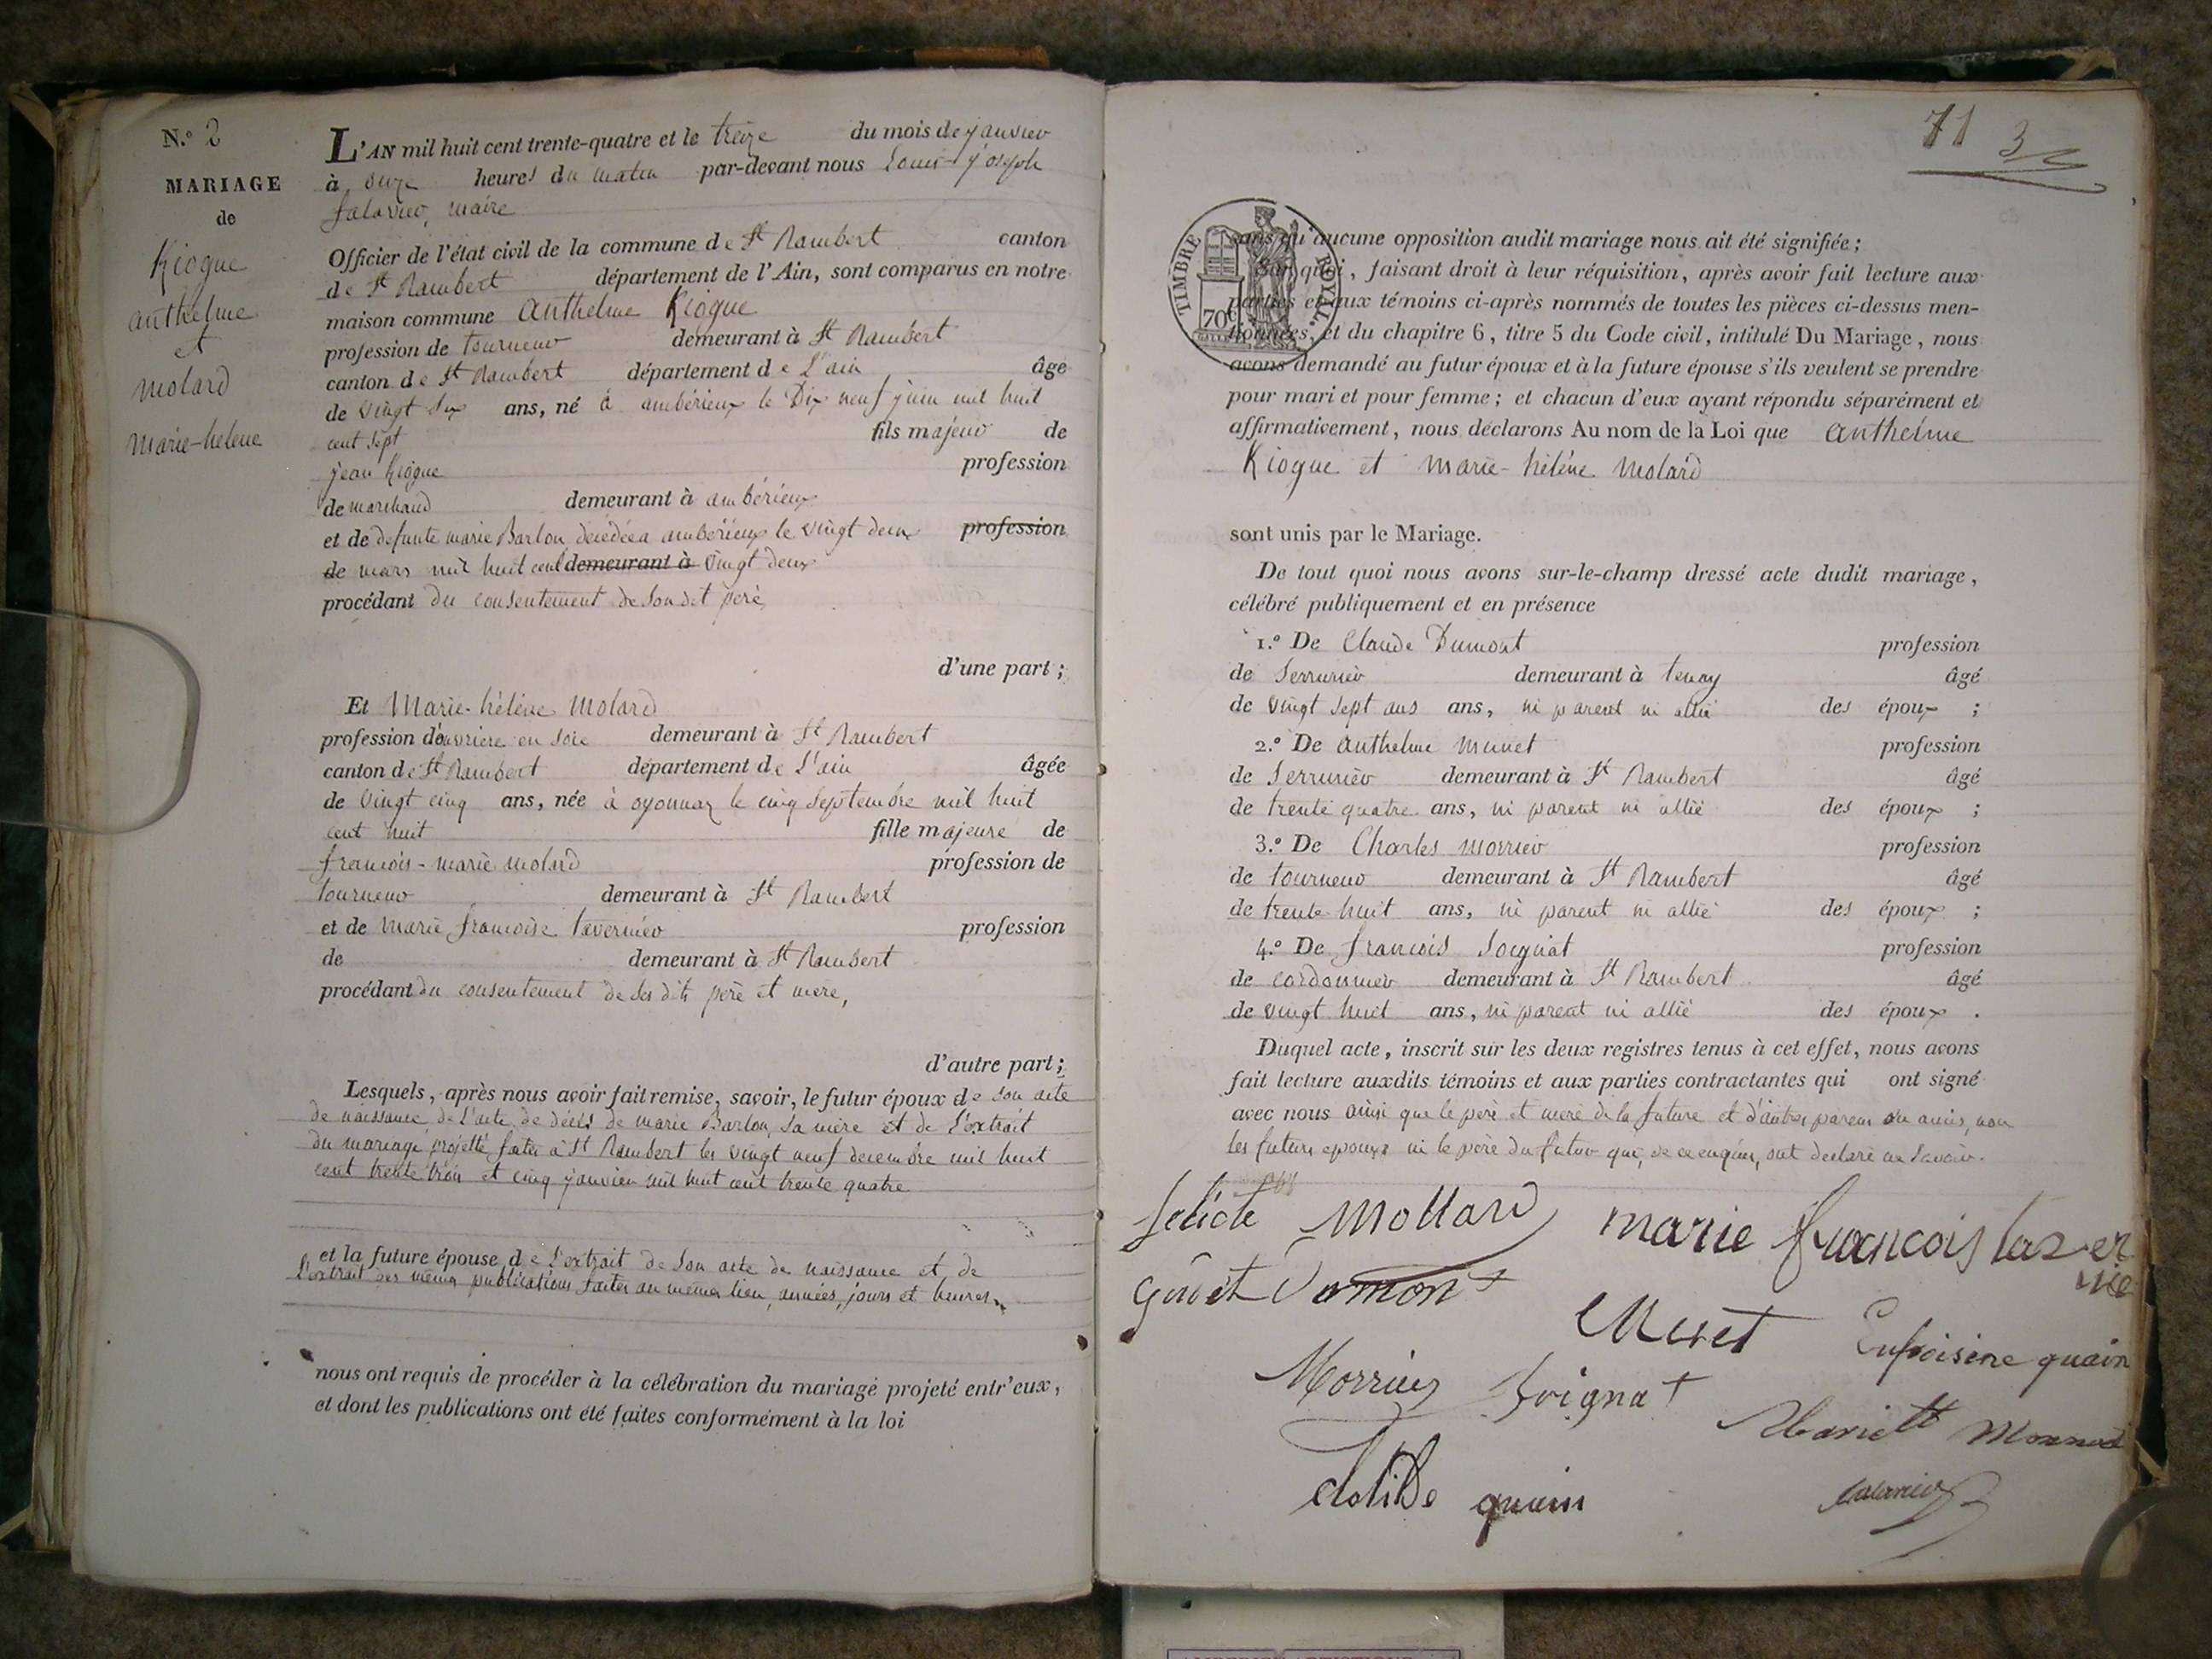 N.º 2
MARIAGE
de
Kiogue
anthelme
et
molard
marie-helene
L'AN mil huit cent trente-quatre et le treize du mois de janvier
à onze heures du matin par-devant nous Louis-joseph
falavier, maire
Officier de l'état civil de la commune de St Rambert canton
de St Rambert département de l'Ain, sont comparus en notre
maison commune Anthelme Kiogue
profession de tourneur demeurant à St Rambert
canton de St Rambert département de L'ain âge
de vingt six ans, né à ambérieux le Dix neuf juin mil huit
cent sept fils majeur de
jean Kiogue profession
de marchand demeurant à ambérieux
et de defunte marie Barlon décédée a ambérieux le vingt deux profession
de mars mil huit cent demeurant à vingt deux
procédant du consentement de son dit père,
d'une part ;
Et Marie-hélène Molard
profession d'ouvriere en soie demeurant à St Rambert
canton de St Rambert département de L'ain âgée
de vingt cinq ans, née à oyonnax le cinq septembre mil huit
cent huit fille majeure de
françois-marie molard profession de
tourneur demeurant à St Rambert
et de marie françoise tavernier profession
de demeurant à St Rambert
procédant du consentement de ses dits père et mere,
d'autre part ;
Lesquels, après nous avoir fait remise, savoir, le futur époux de son acte
de naissance, de l'acte de décès de marie Barlon, sa mère et de l'extrait
du mariage projetté faites à St Rambert les vingt neuf decembre mil huit
cent trente trois et cinq janvier mil huit cent trente quatre
et la future épouse de l'extrait de son acte de naissance et de
l'extrait des mêmes publications faites au même lieu, années, jours et heures,
nous ont requis de procéder à la célébration du mariage projeté entr'eux,
et dont les publications ont été faites conformément à la loi
71 3
TIMBRE ROYAL
70
sans qu'aucune opposition audit mariage nous ait été signifiée ;
Sur quoi, faisant droit à leur réquisition, après avoir fait lecture aux
parties et aux témoins ci-après nommés de toutes les pièces ci-dessus men-
tionnées, et du chapitre 6, titre 5 du Code civil, intitulé Du Mariage, nous
avons demandé au futur époux et à la future épouse s'ils veulent se prendre
pour mari et pour femme ; et chacun d'eux ayant répondu séparément et
affirmativement, nous déclarons Au nom de la Loi que Anthelme
Kiogue et Marie-hélène Molard
sont unis par le Mariage.
De tout quoi nous avons sur-le-champ dressé acte dudit mariage,
célébré publiquement et en présence
1.º De Claude Dumont profession
de Serrurier demeurant à tenay âgé
de vingt sept ans ans, ni parent ni allié des époux ;
2.º De Anthelme Munet profession
de Serrurier demeurant à St Rambert âgé
de trente quatre ans, ni parent ni allié des époux ;
3.º De Charles Morrier profession
de tourneur demeurant à St Rambert âgé
de trente huit ans, ni parent ni allié des époux ;
4.º De françois Soignat profession
de cordonnier demeurant à St Rambert âgé
de vingt huit ans, ni parent ni allié des époux .
Duquel acte, inscrit sur les deux registres tenus à cet effet, nous avons
fait lecture auxdits témoins et aux parties contractantes qui ont signé
avec nous ainsi que le père et mere de la future et d'autres parens ou amis, non
les futurs epoux ni le père du futur qui, de ce enquis, ont declaré ne savoir.
felicte Mollard marie francois taver
nie
Dumont
Munet Enfroisine quain
Morrier Soignat
Mariett Monnet
clotilde quain
falavier